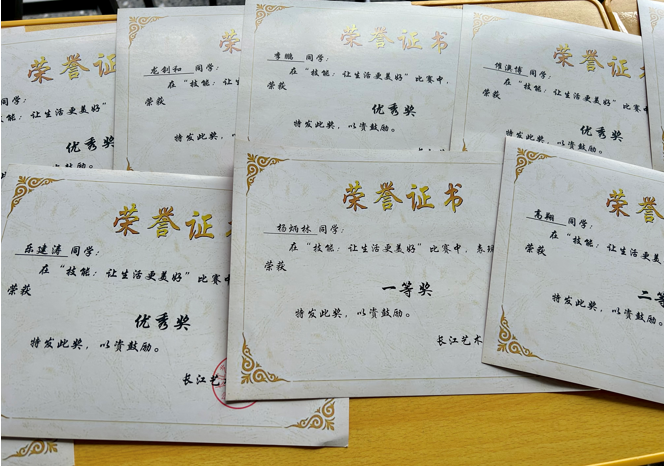 荣誉证
同学：
么，让生活更美好”
优秀奖
以资鼓励。
荣誉
龙剑和 同学：
在“技能：让生
荣获
特发此
荣誉证书
李鹏 同学：
在“技能：让生活更美好”比赛中，
荣获
优秀奖
特发此奖，以资鼓励。
长江
荣誉证
惟滨博 同学：
在“技能：让生活更美好”比赛中
荣获
优秀奖
特发此奖，以资鼓励。
荣誉证
乐建涛 同学：
在“技能：让生活更美好”比赛中
荣获
优秀奖
特发此奖，以资鼓励。
长江艺
荣誉证书
杨炳林 同学：
在“技能：让生活更美好”比赛中，表现
荣获
一等奖
特发此奖，以资鼓励。
长江艺术
荣誉
高翔 同学：
在“技能：让生活更美
荣获
二等
特发此奖，以资鼓励。